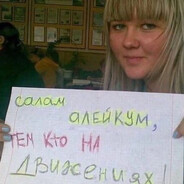 салам
АЛЕЙКУМ,
ТЕМ КТО НА
ДВИЖЕНИЯХ!